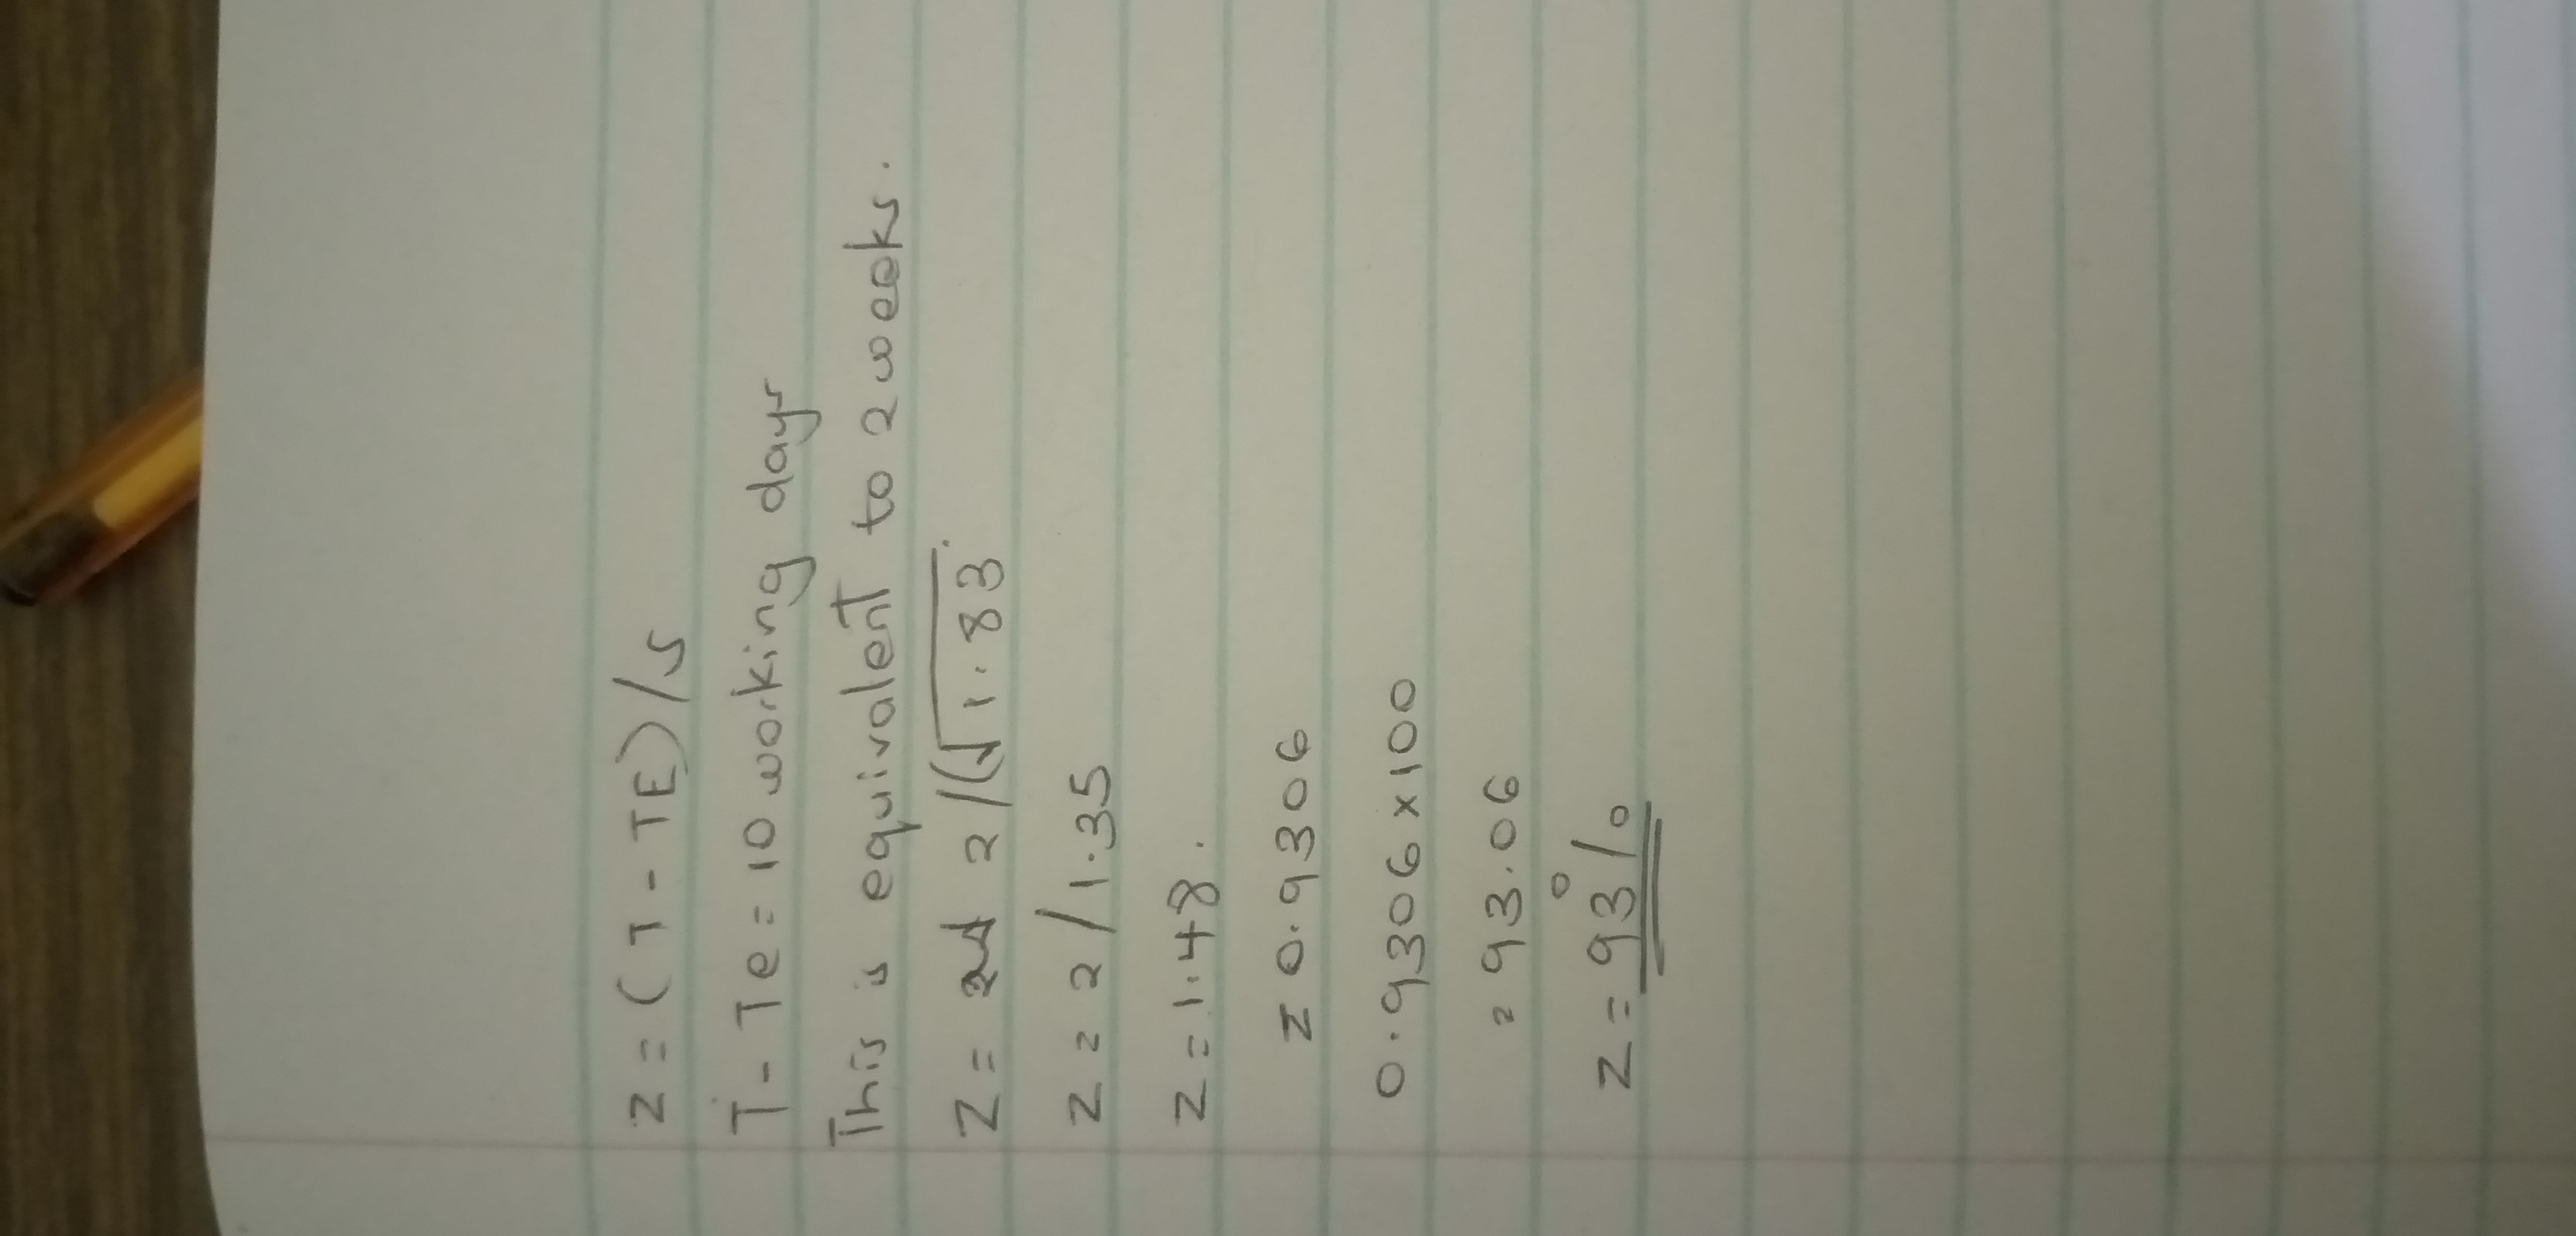 Z = (T - TE)/s
T - Te = 10 working days
This is equivalent to 2 weeks.
Z = 2/(√1.83
Z = 2/1.35
Z = 1.48.
Z 0.9306
0.9306 x 100
= 93.06
Z = 93%